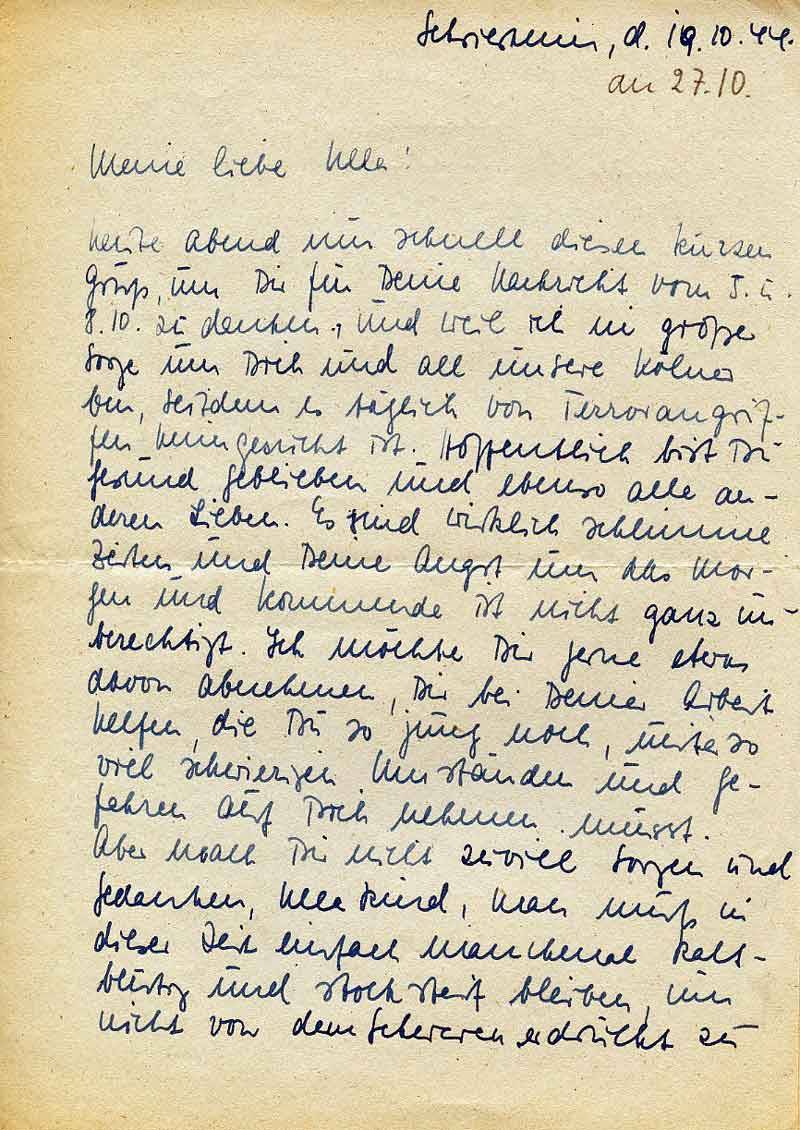 Schriesheim, d. 19.10.44.
an 27.10.
Meine liebe Ulla!
heute Abend nur schnell diesen kurzen
Gruß, um Dir für Deine Nachricht vom 5. u.
8.10. zu danken, und weil ich in großer
Sorge um Dich und all unsere Kölner
bin, seitdem es täglich von Terrorangrif-
fen heimgesucht ist. Hoffentlich bist Du
gesund geblieben und ebenso alle an-
deren Lieben. Es sind wirklich schlimme
Zeiten und Deine Angst um das Mor-
gen und Kommende ist nicht ganz un-
berechtigt. Ich möchte Dir gerne etwas
davon abnehmen, Dir bei Deiner Arbeit
helfen, die Du so jung noch, unter so
viel schwierigen Umständen und Ge-
fahren auf Dich nehmen musst.
Aber mach Dir nicht zuviel Sorgen und
Gedanken, Ulla Kind, man muß in
dieser Zeit einfach manchmal kalt-
blütig und stocksteif bleiben, um
nicht von dem Schweren erdrückt zu